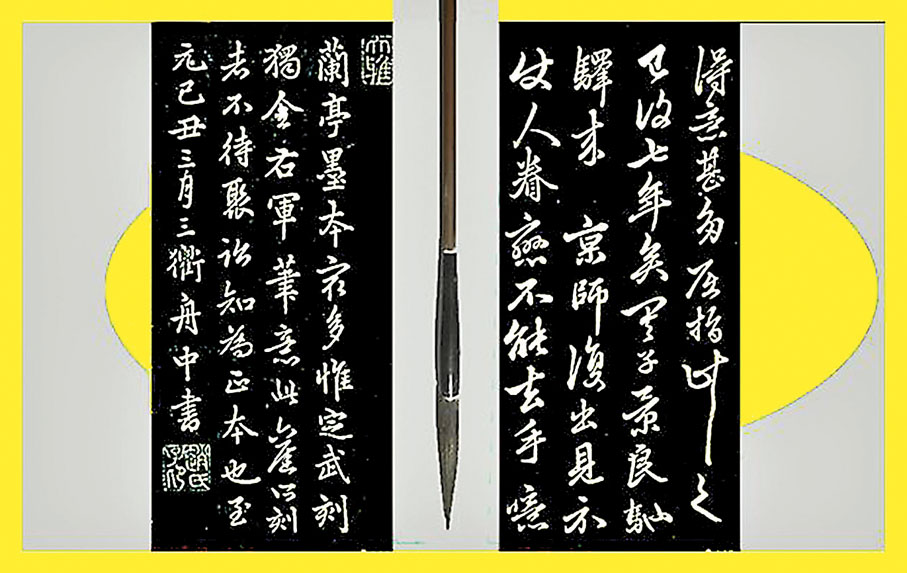 得意甚多屈指計之
已後七年矣子景良馳
驛來 京師復出見示
使人眷戀不能去手噫
大雅
蘭亭墨本冣多惟定武刻
獨全右軍筆意此舊所刻
者不待聚訟知為正本也至
元己丑三月三衢舟中書
趙氏子昂